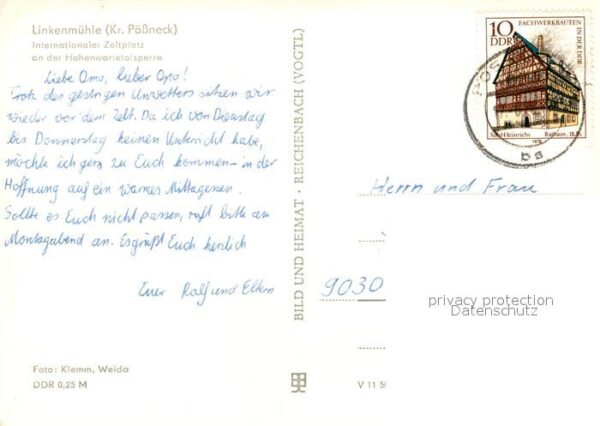 Linkenmühle (Kr. Pößneck)
Internationaler Zeltplatz
an der Hohenwartetalsperre
Liebe Oma, lieber Opa!
Trotz des gestrigen Unwetters sitzen wir
wieder vor dem Zelt. Da ich von Dienstag
bis Donnerstag keinen Unterricht habe,
möchte ich gern zu Euch kommen – in der
Hoffnung auf ein warmes Mittagessen.
Sollte es Euch nicht passen, ruft bitte am
Montagabend an. Es grüßt Euch herzlich
Euer Ralf und Eltern
Foto: Klemm, Weida
DDR 0,25 M
BILD UND HEIMAT · REICHENBACH (VOGTL)
V 11 50
10
DDR
FACHWERKBAUTEN
IN DER DDR
Suhl-Heinrichs
Rathaus, 16. Jh.
1978
PÖS
bs
Herrn und Frau
9030
privacy protection
Datenschutz